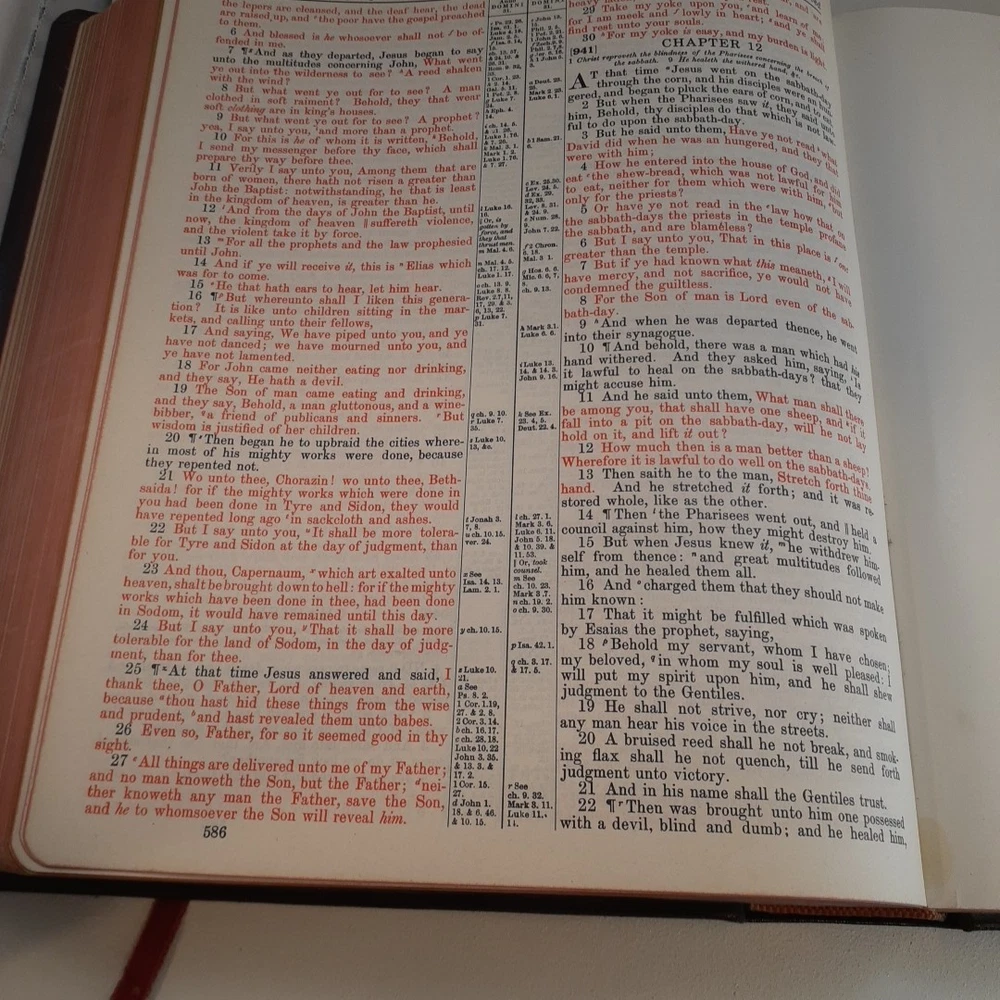 the lepers are cleansed, and the deaf hear, the dead
are raised up, and the poor have the gospel preached
to them.
6 And blessed is he whosoever shall not be of-
fended in me.
7 ¶ And as they departed, Jesus began to say
unto the multitudes concerning John, What went
ye out into the wilderness to see? A reed shaken
with the wind?
8 But what went ye out for to see? A man
clothed in soft raiment? Behold, they that wear
soft clothing are in king's houses.
9 But what went ye out for to see? A prophet?
yea, I say unto you, and more than a prophet.
10 For this is he of whom it is written, Behold,
I send my messenger before thy face, which shall
prepare thy way before thee.
11 Verily I say unto you, Among them that are
born of women, there hath not risen a greater than
John the Baptist: notwithstanding, he that is least
in the kingdom of heaven, is greater than he.
12 And from the days of John the Baptist, until
now, the kingdom of heaven ‖ suffereth violence,
and the violent take it by force.
13 For all the prophets and the law prophesied
until John.
14 And if ye will receive it, this is Elias which
was for to come.
15 He that hath ears to hear, let him hear.
16 ¶ But whereunto shall I liken this genera-
tion? It is like unto children sitting in the mar-
kets, and calling unto their fellows,
17 And saying, We have piped unto you, and ye
have not danced; we have mourned unto you, and
ye have not lamented.
18 For John came neither eating nor drinking,
and they say, He hath a devil.
19 The Son of man came eating and drinking,
and they say, Behold, a man gluttonous, and a wine-
bibber, a friend of publicans and sinners. But
wisdom is justified of her children.
20 ¶ Then began he to upbraid the cities where-
in most of his mighty works were done, because
they repented not.
21 Wo unto thee, Chorazin! wo unto thee, Beth-
saida! for if the mighty works which were done in
you had been done in Tyre and Sidon, they would
have repented long ago in sackcloth and ashes.
22 But I say unto you, It shall be more tolera-
ble for Tyre and Sidon at the day of judgment, than
for you.
23 And thou, Capernaum, which art exalted unto
heaven, shalt be brought down to hell: for if the mighty
works which have been done in thee, had been done
in Sodom, it would have remained until this day.
24 But I say unto you, That it shall be more
tolerable for the land of Sodom, in the day of judg-
ment, than for thee.
25 ¶ At that time Jesus answered and said, I
thank thee, O Father, Lord of heaven and earth,
because thou hast hid these things from the wise
and prudent, and hast revealed them unto babes.
26 Even so, Father, for so it seemed good in thy
sight.
27 All things are delivered unto me of my Father;
and no man knoweth the Son, but the Father; nei-
ther knoweth any man the Father, save the Son,
and he to whomsoever the Son will reveal him.
586
q ch. 9. 10.
r Luke 7.
35.
s Luke 10.
13, &c.
t Jonah 3.
7, 8.
u ch. 10. 15.
ver. 24.
x See
Isa. 14. 13.
Lam. 2. 1.
y ch. 10. 15.
z Luke 10.
21.
a See
Ps. 8. 2.
1 Cor. 1.19,
27. & 2. 8.
2 Cor. 3. 14.
b ch. 16. 17.
c ch. 28. 18.
Luke 10. 22
John 3. 35.
& 13. 3. &
17. 2.
1 Cor. 15.
27.
d John 1.
18. & 6. 46.
& 10. 15.
h Mark 3.1.
Luke 6. 6.
i Luke 13.
14. & 14. 3.
John 9. 16.
k See Ex.
23. 4, 5.
Deut. 22. 4.
l ch. 27. 1.
Mark 3. 6.
Luke 6. 11.
John 5. 18.
& 10. 39. &
11. 53.
‖ Or, took
counsel.
m See
ch. 10. 23.
Mark 3. 7.
n ch. 19. 2.
o ch. 9. 30.
p Isa. 42. 1.
q ch. 3. 17.
& 17. 5.
r See
ch. 9. 32.
Mark 3. 11.
Luke 11.
14.
29 Take my yoke upon you, and learn of me,
for I am meek and lowly in heart; and ye shall
find rest unto your souls.
30 For my yoke is easy, and my burden is light
CHAPTER 12
[941]
1 Christ reproveth the blindness of the Pharisees concerning the breach
the sabbath. 9 He healeth the withered hand, &c.
AT that time Jesus went on the sabbath-day
through the corn, and his disciples were an hun-
gered, and began to pluck the ears of corn, and to eat.
2 But when the Pharisees saw it, they said unto
him, Behold, thy disciples do that which is not law-
ful to do upon the sabbath-day.
3 But he said unto them, Have ye not read what
David did when he was an hungered, and they that
were with him;
4 How he entered into the house of God, and did
eat the shew-bread, which was not lawful for him
to eat, neither for them which were with him, but
only for the priests?
5 Or have ye not read in the law how that on
the sabbath-days the priests in the temple profane
the sabbath, and are blameless?
6 But I say unto you, That in this place is one
greater than the temple.
7 But if ye had known what this meaneth, I will
have mercy, and not sacrifice, ye would not have
condemned the guiltless.
8 For the Son of man is Lord even of the sab-
bath-day.
9 And when he was departed thence, he went
into their synagogue.
10 ¶ And behold, there was a man which had his
hand withered. And they asked him, saying, Is
it lawful to heal on the sabbath-days? that they
might accuse him.
11 And he said unto them, What man shall there
be among you, that shall have one sheep, and if it
fall into a pit on the sabbath-day, will he not lay
hold on it, and lift it out?
12 How much then is a man better than a sheep?
Wherefore it is lawful to do well on the sabbath-days.
13 Then saith he to the man, Stretch forth thine
hand. And he stretched it forth; and it was re-
stored whole, like as the other.
14 ¶ Then the Pharisees went out, and ‖ held a
council against him, how they might destroy him.
15 But when Jesus knew it, he withdrew him-
self from thence: and great multitudes followed
him, and he healed them all.
16 And charged them that they should not make
him known:
17 That it might be fulfilled which was spoken
by Esaias the prophet, saying,
18 Behold my servant, whom I have chosen;
my beloved, in whom my soul is well pleased: I
will put my spirit upon him, and he shall shew
judgment to the Gentiles.
19 He shall not strive, nor cry; neither shall
any man hear his voice in the streets.
20 A bruised reed shall he not break, and smok-
ing flax shall he not quench, till he send forth
judgment unto victory.
21 And in his name shall the Gentiles trust.
22 ¶ Then was brought unto him one possessed
with a devil, blind and dumb; and he healed him,